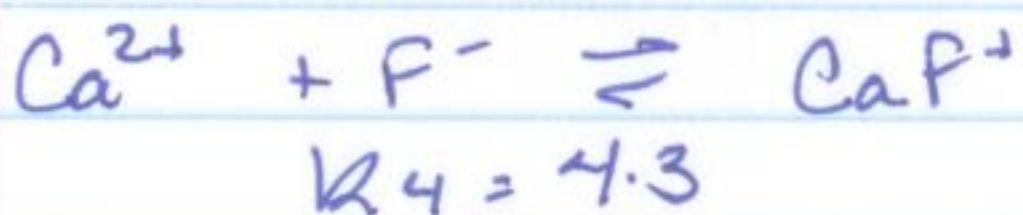 Ca²⁺ + F⁻ ⇌ CaF⁺
K4 = 4.3